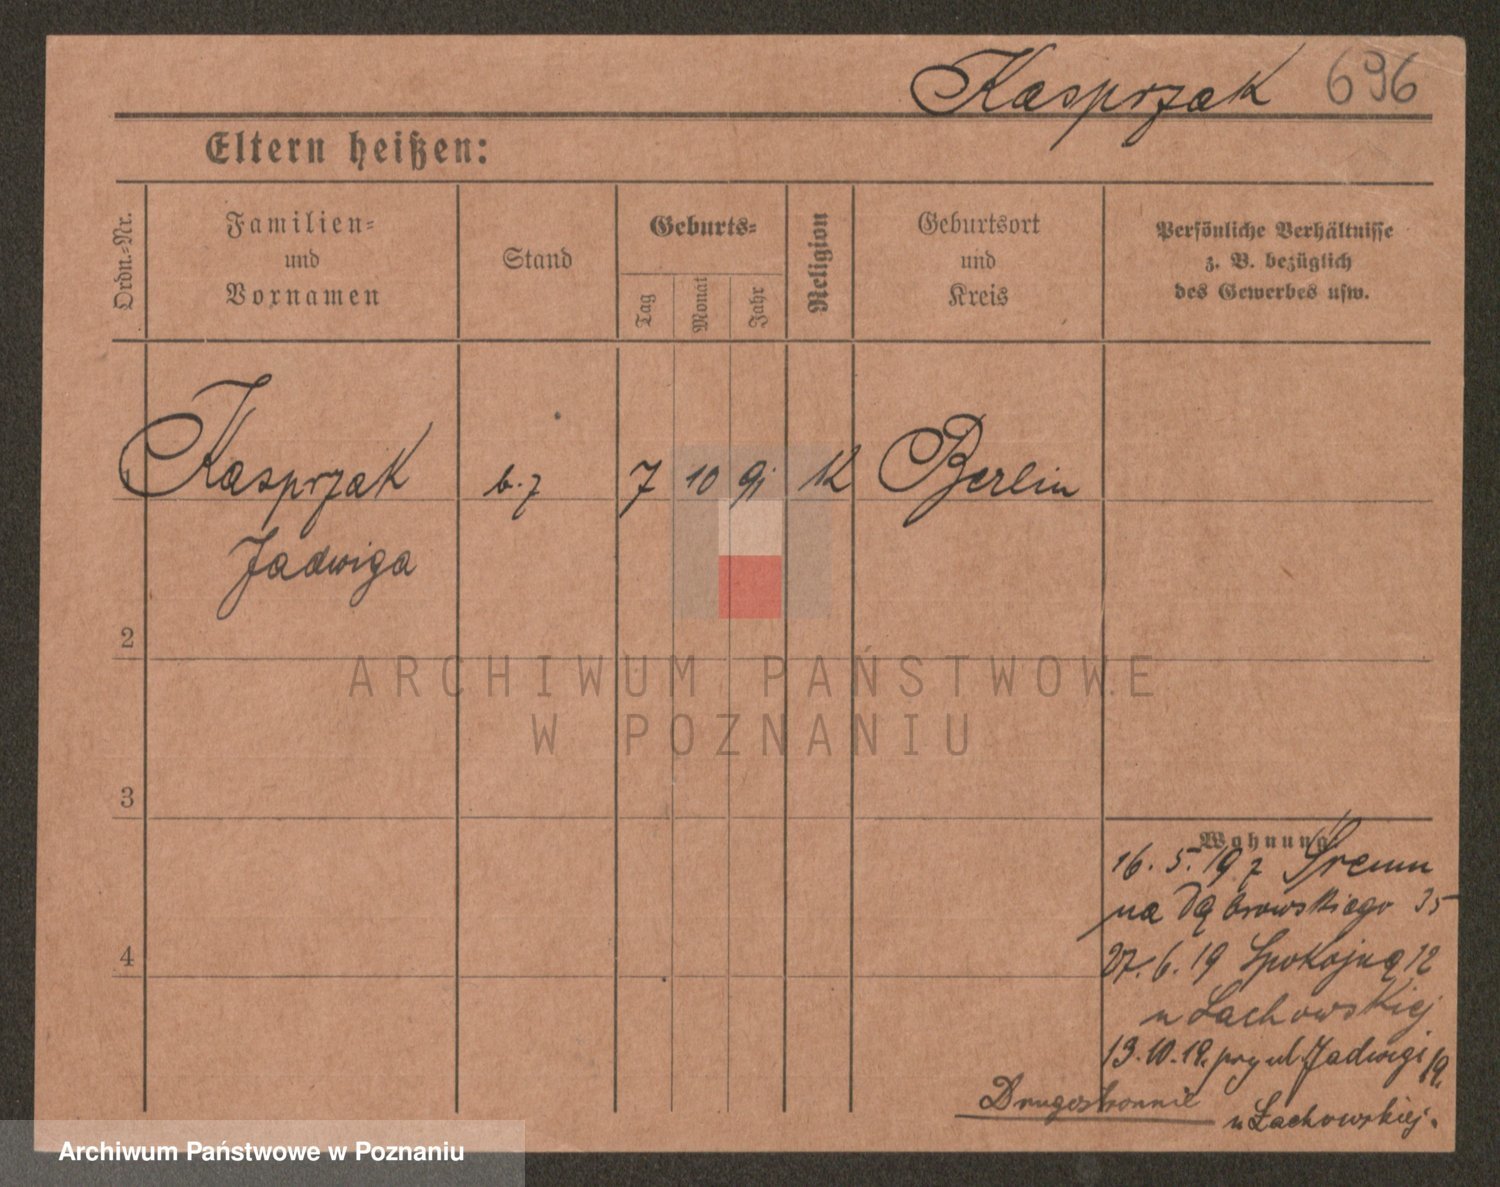 Kasprzak 696
Eltern heißen:
Ordn.-Nr.
Familien-
und
Vornamen
Stand
Geburts-
Tag
Monat
Jahr
Religion
Geburtsort
und
Kreis
Persönliche Verhältnisse
z. B. bezüglich
des Gewerbes usw.
1 Kasprzak b. z 7 10 91 K Berlin
Jadwiga
2
3
4
Wohnung
16. 5. 19 z Śremu
na Dąbrowskiego 35
27. 6. 19 Spokojną 12
u Lachowskiej
13.10.19. przy ul. Jadwigi 19.
u Łachowskiej.
Drugostronnie
ARCHIWUM PAŃSTWOWE
W POZNANIU
Archiwum Państwowe w Poznaniu